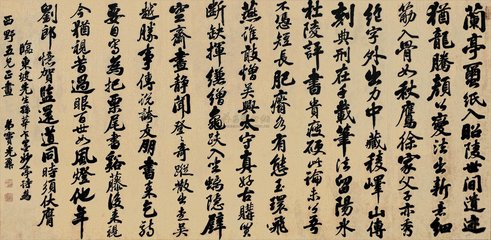 蘭亭繭紙入昭陵世間遺迹
猶龍騰顏公變法出新意細
筋入骨如秋鷹徐家父子亦秀
絕字外出力中藏稜嶧山傳
刻典刑在千載筆法留陽冰
杜陵評書貴瘦硬此論未公吾
不憑短長肥瘠各有態玉環飛
燕誰敢憎吳興太守真好古購買
斷缺揮縑繒龜趺入坐螭隱壁
空齋晝靜聞登登奇蹤散出走吳
越勝事傳說誇友朋書來乞詩
要自寫為把栗尾書谿藤後來視
今猶視昔過眼百世如風燈他年
劉郎憶賀監還道同時須伏膺
臨東坡先生孫莘老求妙亭詩為
西野五兄正 弟竇光鼐